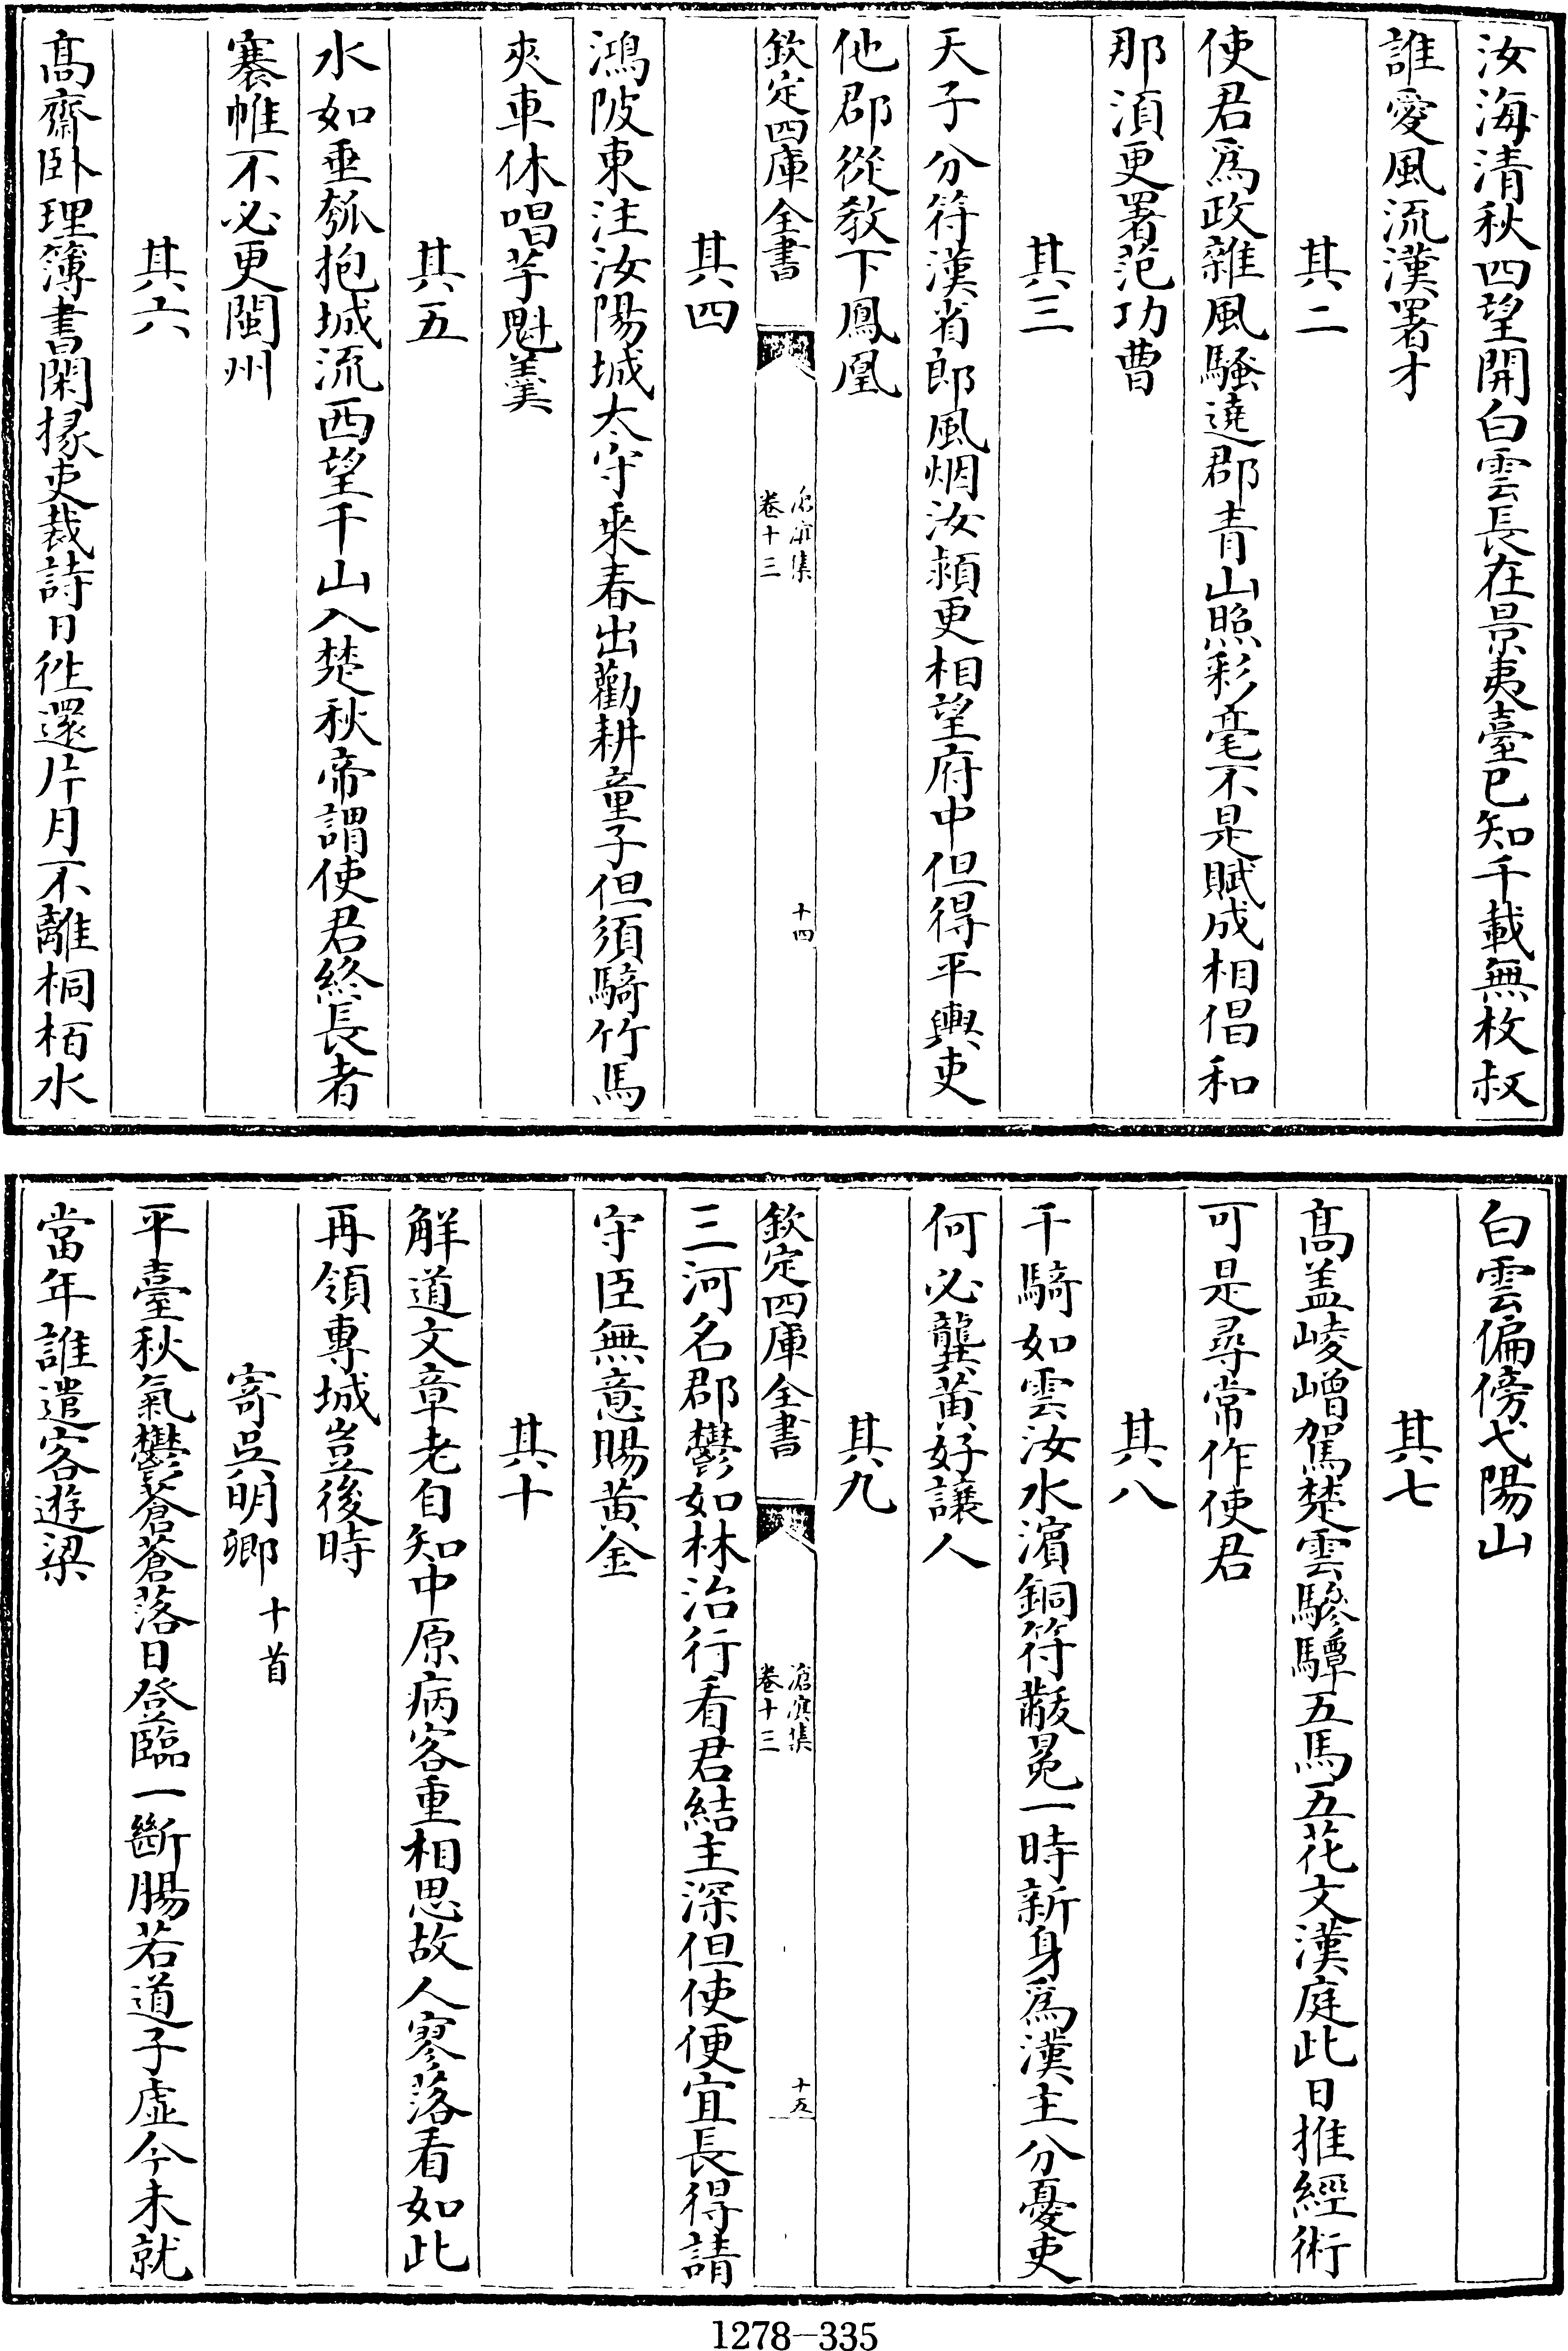 汝海清秋四望開白雲長在景夷臺已知千載無枚叔
誰愛風流漢署才
其二
使君爲政雜風騷遶郡青山照彩毫不是賦成相倡和
那湏更署范功曹
其三
天子分符漢省郎風烟汝潁更相望府中但得平輿吏
他郡從教下鳳凰
欽定四庫全書
滄溟集
卷十三
十四
其四
鴻陂東注汝陽城太守乘春出勸耕童子但須騎竹馬
夾車休唱芋魁羹
其五
水如垂瓠抱城流西望千山入楚秋帝謂使君終長者
褰帷不必更閩州
其六
髙齋卧理簿書閑掾吏裁詩日徃還片月不離桐栢水
白雲偏傍弋陽山
其七
髙盖崚嶒駕楚雲驂驔五馬五花文漢庭此日推經術
可是尋常作使君
其八
千騎如雲汝水濵銅符黻冕一時新身爲漢主分憂吏
何必龔黄好讓人
其九
欽定四庫全書
滄溟集
卷十三
十五
三河名郡鬱如林治行看君結主深但使便宜長得請
守臣無意賜黄金
其十
解道文章老自知中原病客重相思故人寥落看如此
再領專城豈後時
寄吳明卿十首
平臺秋氣鬱蒼蒼落日登臨一斷腸若道子虛今未就
當年誰遣客遊梁
1278—335